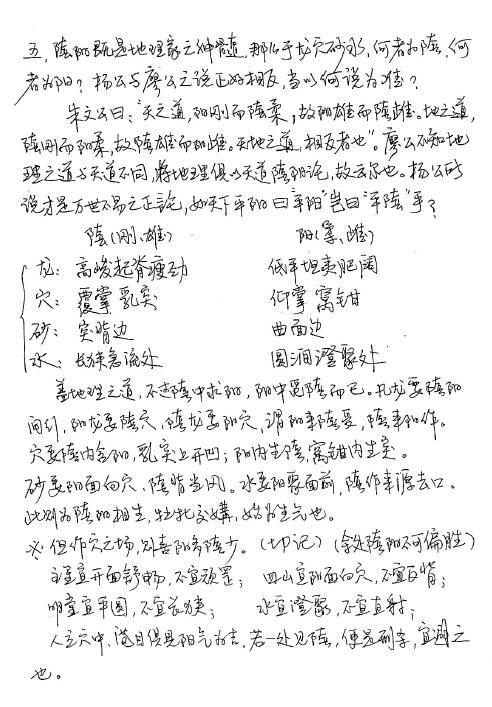 五，阴阳既是地理家之神髓，那么于龙穴砂水，何者为阴，何
者为阳？杨公与廖公之说正如相反，当以何说为准？
朱文公曰："天之道，阳刚而阴柔，故阳雄而阴雌。地之道，
阴刚而阳柔，故阴雄而阳雌。天地之道，相反者也"。廖公不知地
理之道与天道不同，将地理俱以天道阴阳论，故云尔也。杨公所
说才是万世不易之正论，如天下平阳曰"平阳"岂曰"平阴"乎？
阴（刚、雄） 阳（柔、雌）
龙：高峻起脊瘦劲 低平坦夷肥阔
穴：覆掌乳突 仰掌窝钳
砂：突背边 曲面边
水：长狭急流处 圆润澄聚处
盖地理之道，不过阴中求阳，阳中觅阴而已。凡龙要阴阳
间行，阳龙要阴穴，阴龙要阳穴，谓阳来阴受，阴来阳作。
穴要阴内含阳，乳突上开凹；阳内生阴，窝钳内生突。
砂要阳面向穴，阴背当风。水要阳聚面前，阴作来源去口。
此则为阴阳相生，牡牝交媾，始为生气也。
※ 但作穴之场，则喜阳多阴少。（切记）（余处阴阳不可偏胜）
主星宜开面舒畅，不宜顽罡； 四山宜阳面向穴，不宜反背；
明堂宜平圆，不宜长狭； 水宜澄聚，不宜直射；
人立穴中，满目俱是阳气为吉，若一处见阴，便是刑害，宜避之
也。